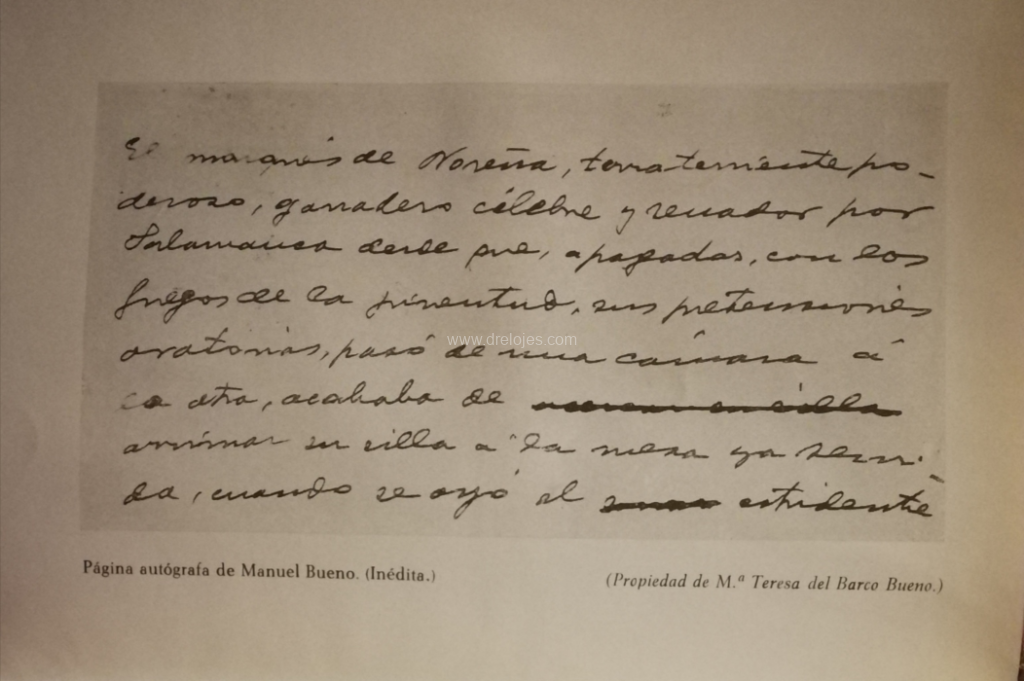 El marqués de Noreña, terrateniente po-
deroso, ganadero célebre y senador por
Salamanca desde que, apagadas, con los
fuegos de la juventud, sus pretensiones
oratorias, pasó de una cámara á
la otra, acababa de
arrimar su silla a la mesa ya servi-
da, cuando se oyó el estridente
www.drelojes.com
Página autógrafa de Manuel Bueno. (Inédita.)
(Propiedad de M.ª Teresa del Barco Bueno.)